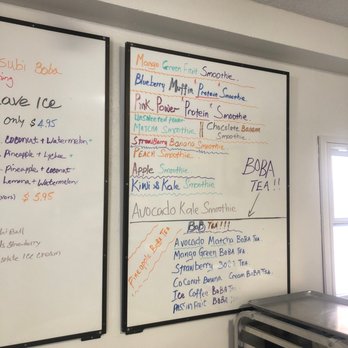 subi Boba
ave Ice
only $4.95
Coconut + Watermelon
Pineapple + Lychee
Pineapple + coconut
Lemona + Watermelon
$5.95
Ball
Strawberry
Ice Cream
Mango Green Fruit Smoothie
Blueberry Muffin "Protein" Smoothie
Pink Power "Protein" Smoothie
Unsweetened
Matcha Smoothie
Chocolate Banana Smoothie
Strawberry Banana Smoothie
Peach Smoothie
Apple Smoothie
Kiwi & Kale Smoothie
Avocado Kale Smoothie
BOBA
TEA!!
Boba Tea!!!
Pineapple Boba Tea
Avocado Matcha Boba Tea
Mango Green Boba Tea
Strawberry Boba Tea
Coconut Banana Cream Boba Tea
Ice Coffee Boba Tea
Passinfruit Boba